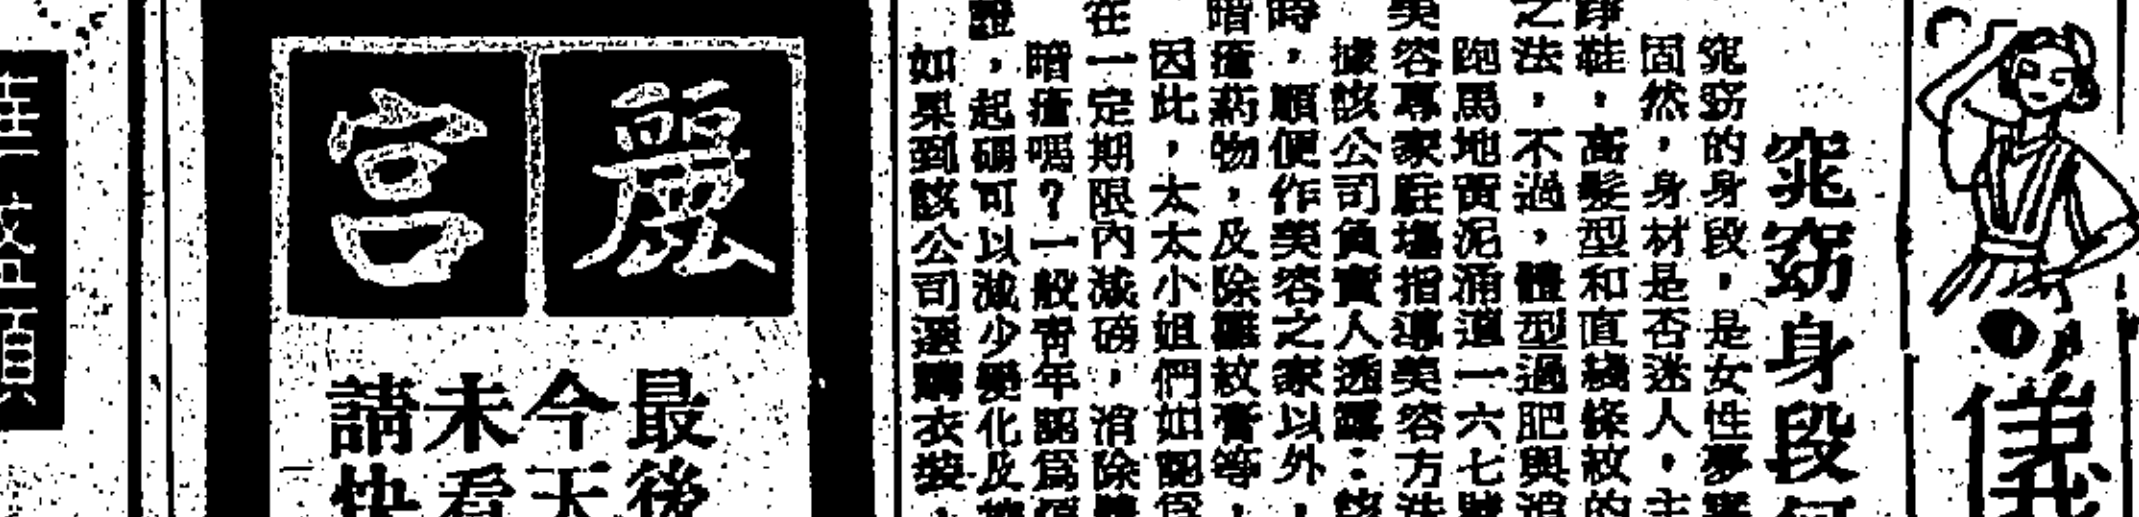 儀
窕窈身段
窕窈的身段，是女性夢寐
固然，身材是否迷人，主
睜鞋，高髮型和直綫條紋的
之法，不過，體型過肥與消
跑馬地黃泥涌道一六七號
美容專家駐塲指導美容方法
據該公司負責人透露：該
時，順便作美容之家以外，
暗瘡葯物，及除皺紋膏等，
因此，太太小姐們如認爲
在一定期限內減磅，消除
暗瘡嗎？一般青年認爲
證，起碼可以減少變化及
如果到該公司選購衣裝，
麗宮
最後
今天
未看
請快